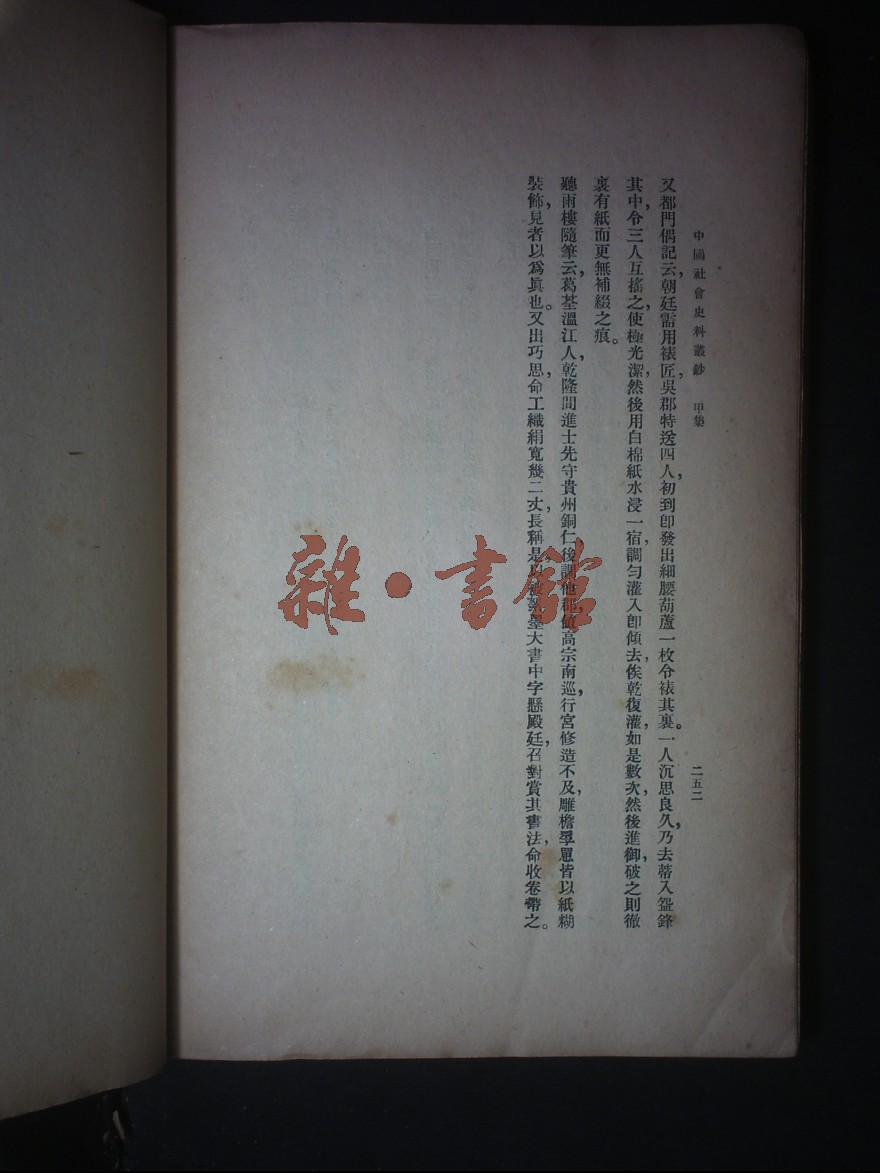 中國社會史料叢鈔 甲集
二五二
又都門偶記云，朝廷需用裱匠，吳郡特送四人，初到卽發出細腰葫蘆一枚令裱其裏。一人沉思良久，乃去蒂入鋒
其中，令三人互搖之，使極光潔，然後用白棉紙水浸一宿，調勻灌入，卽傾去，俟乾復灌，如是數次，然後進御，破之則徹
裏有紙而更無補綴之痕。
聽雨樓隨筆云，葛荃溫江人，乾隆間進士，先守貴州銅仁，後調他郡，高宗南巡，行宮修造不及，雕檐罘罳皆以紙糊
裝飾，見者以爲眞也。又出巧思，命工織絹寬幾二丈，長稱是，以墨大書中字懸殿廷，召對賞其書法，命收卷帶之。
雜·書館